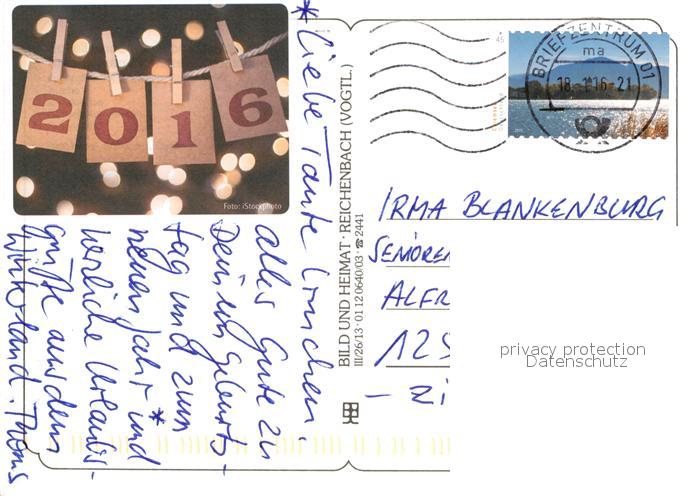 2016
Foto: iStockphoto
*Liebe Tante Irmchen,
alles Gute zu
Deinem Geburts-
tag und zum
neuen Jahr* und
herzliche Urlaubs-
grüße aus dem
Winterland. Thoms
BILD UND HEIMAT · REICHENBACH (VOGTL.)
III/26/13 · 01 12 0640/03 · ☎ 2441
45
BRIEFZENTRUM 01
ma
18.1.16-21
IRMA BLANKENBURG
SENIOREN
ALFR
125
– Zi
privacy protection
Datenschutz